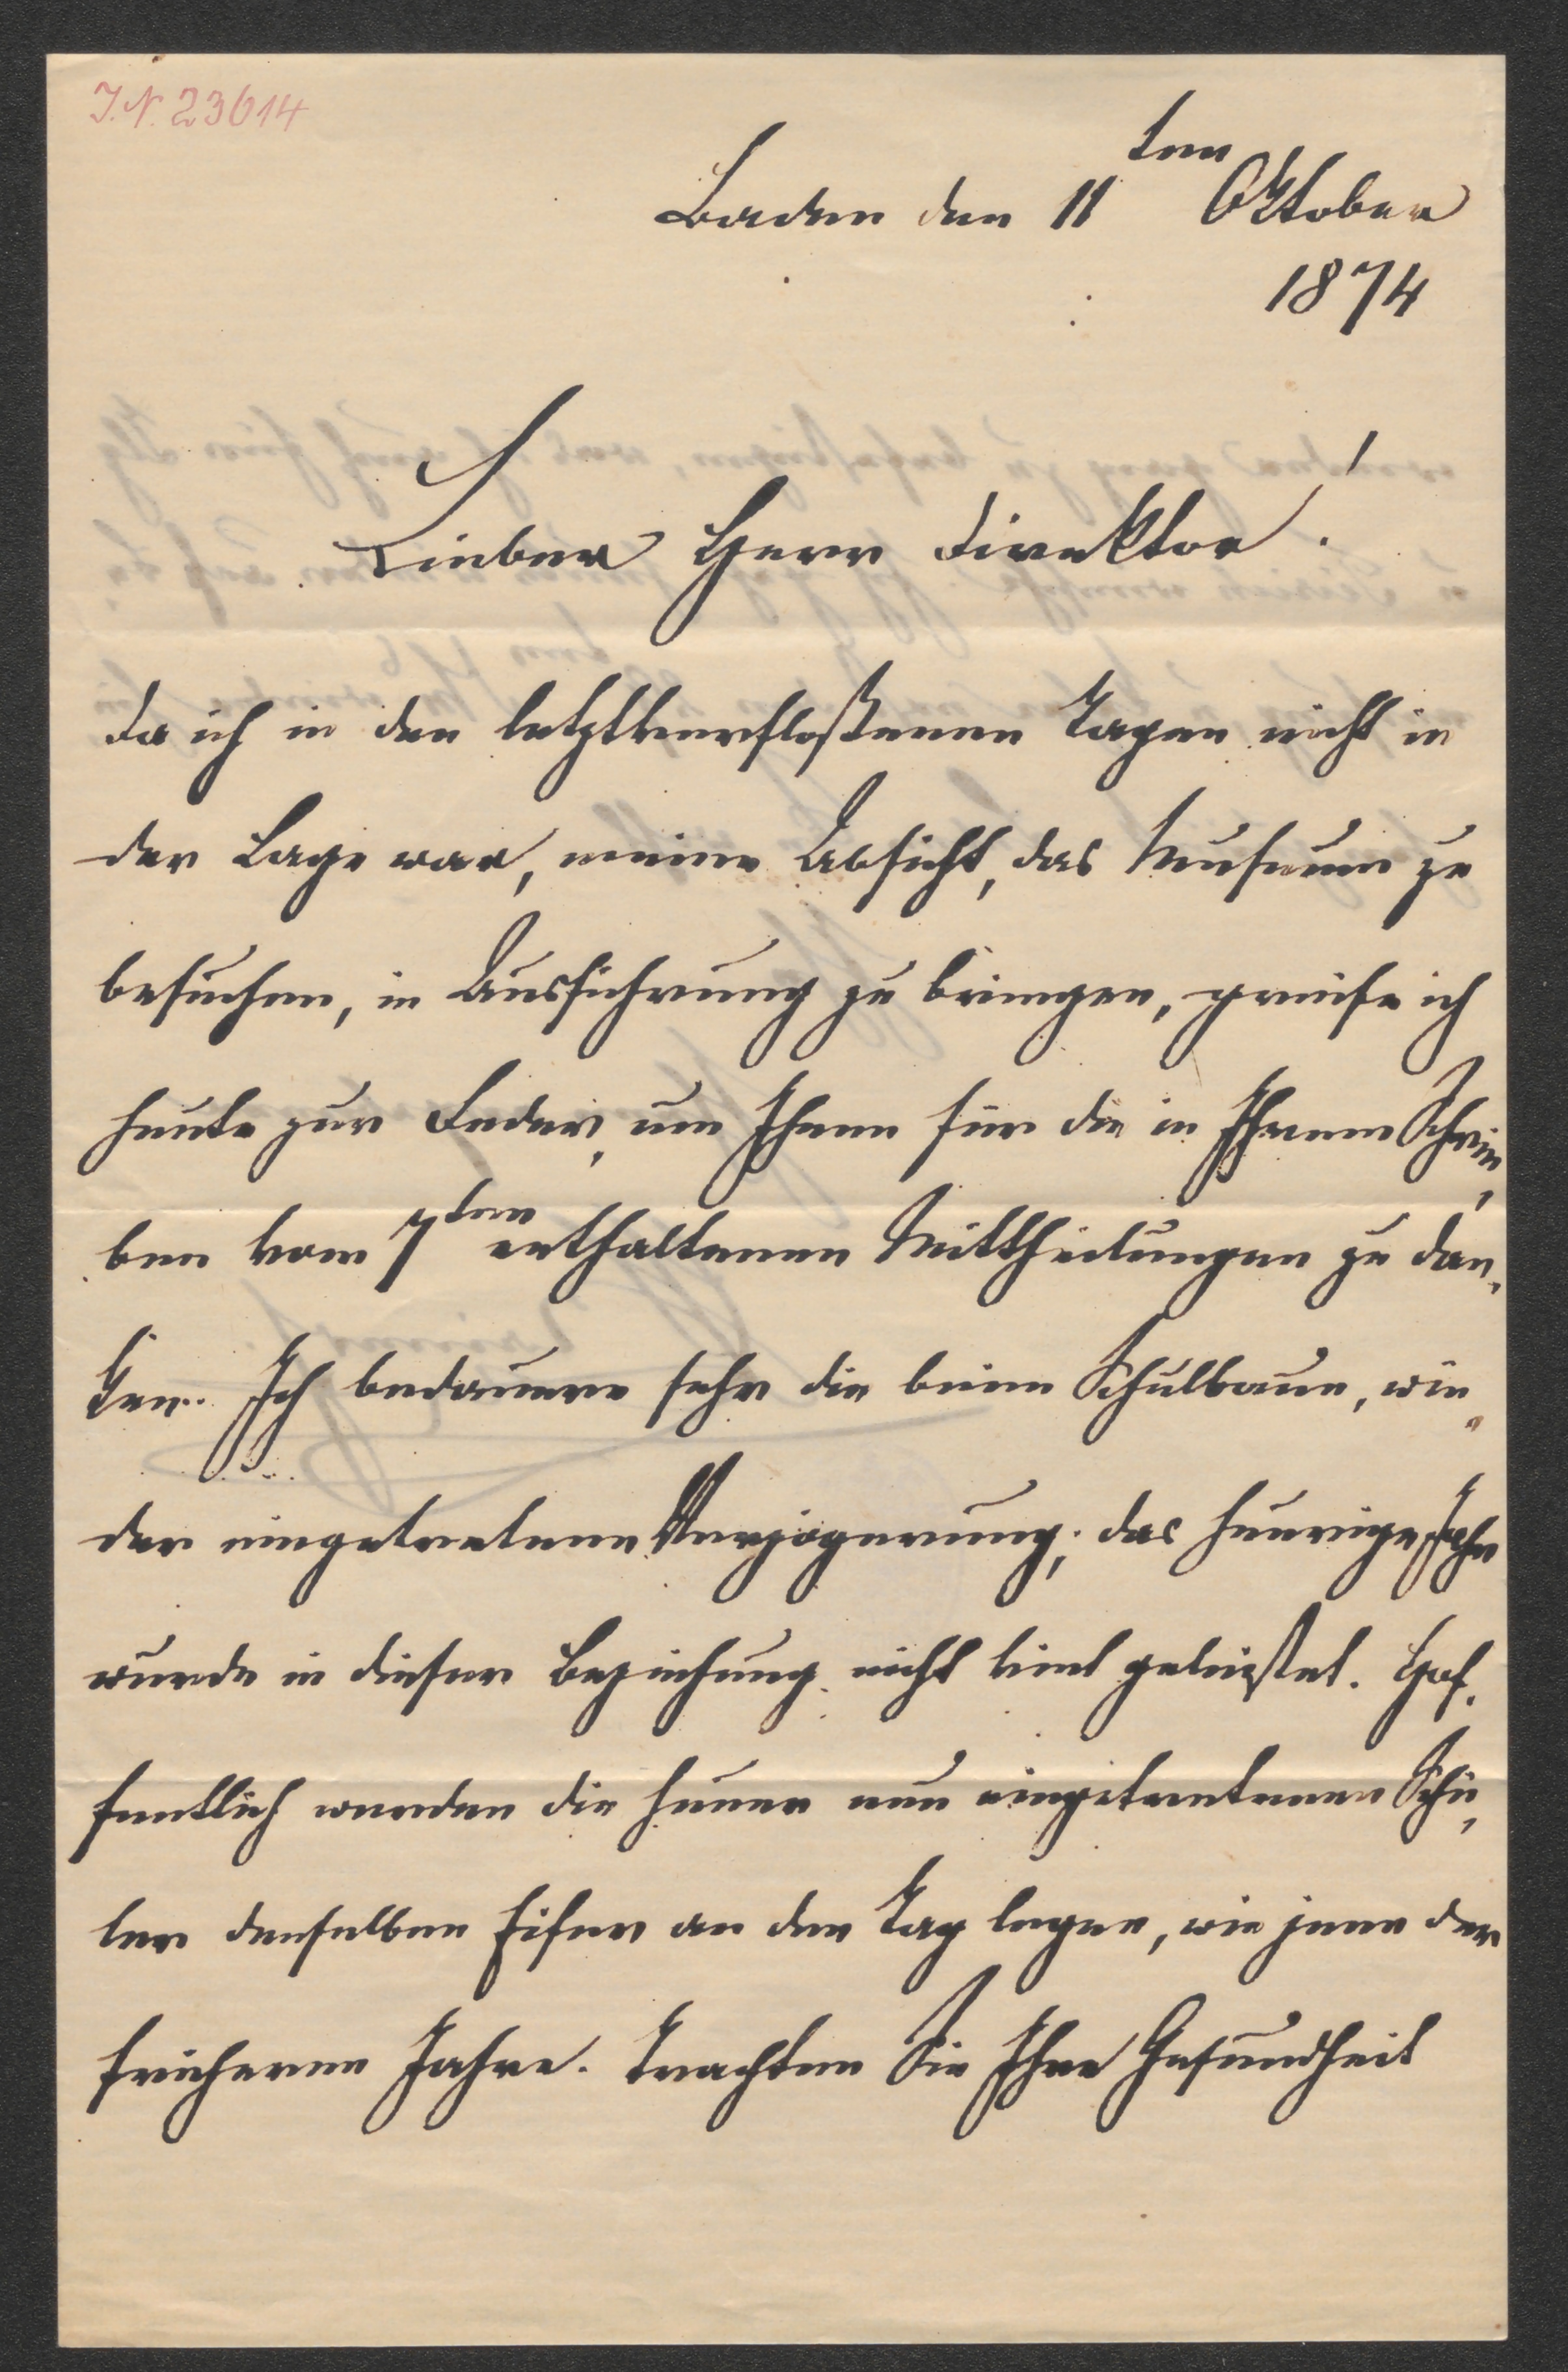 J.N. 23614
Baden den 11ten Oktober
1874
Lieber Herr Direktor!
da ich in den letztverfloßenen Tagen nicht in
der Lage war, meine Absicht, das Museum zu
besuchen, in Ausführung zu bringen, greife ich
heute zur Feder, um Ihnen für die in Ihrem Schrei,
ben vom 7ten enthaltenen Mittheilungen zu dan,
ken. Ich bedauere sehr die beim Schulbaue, wie,
der eingetretene Verzögerung; das heurige Jahr
wurde in dieser Beziehung nicht viel geleistet. Hof,
fentlich werden die heuer neu eingetretenen Schü,
ler denselben Eifer an den Tag legen, wie jene der
früheren Jahre. Trachten Sie Ihre Gesundheit